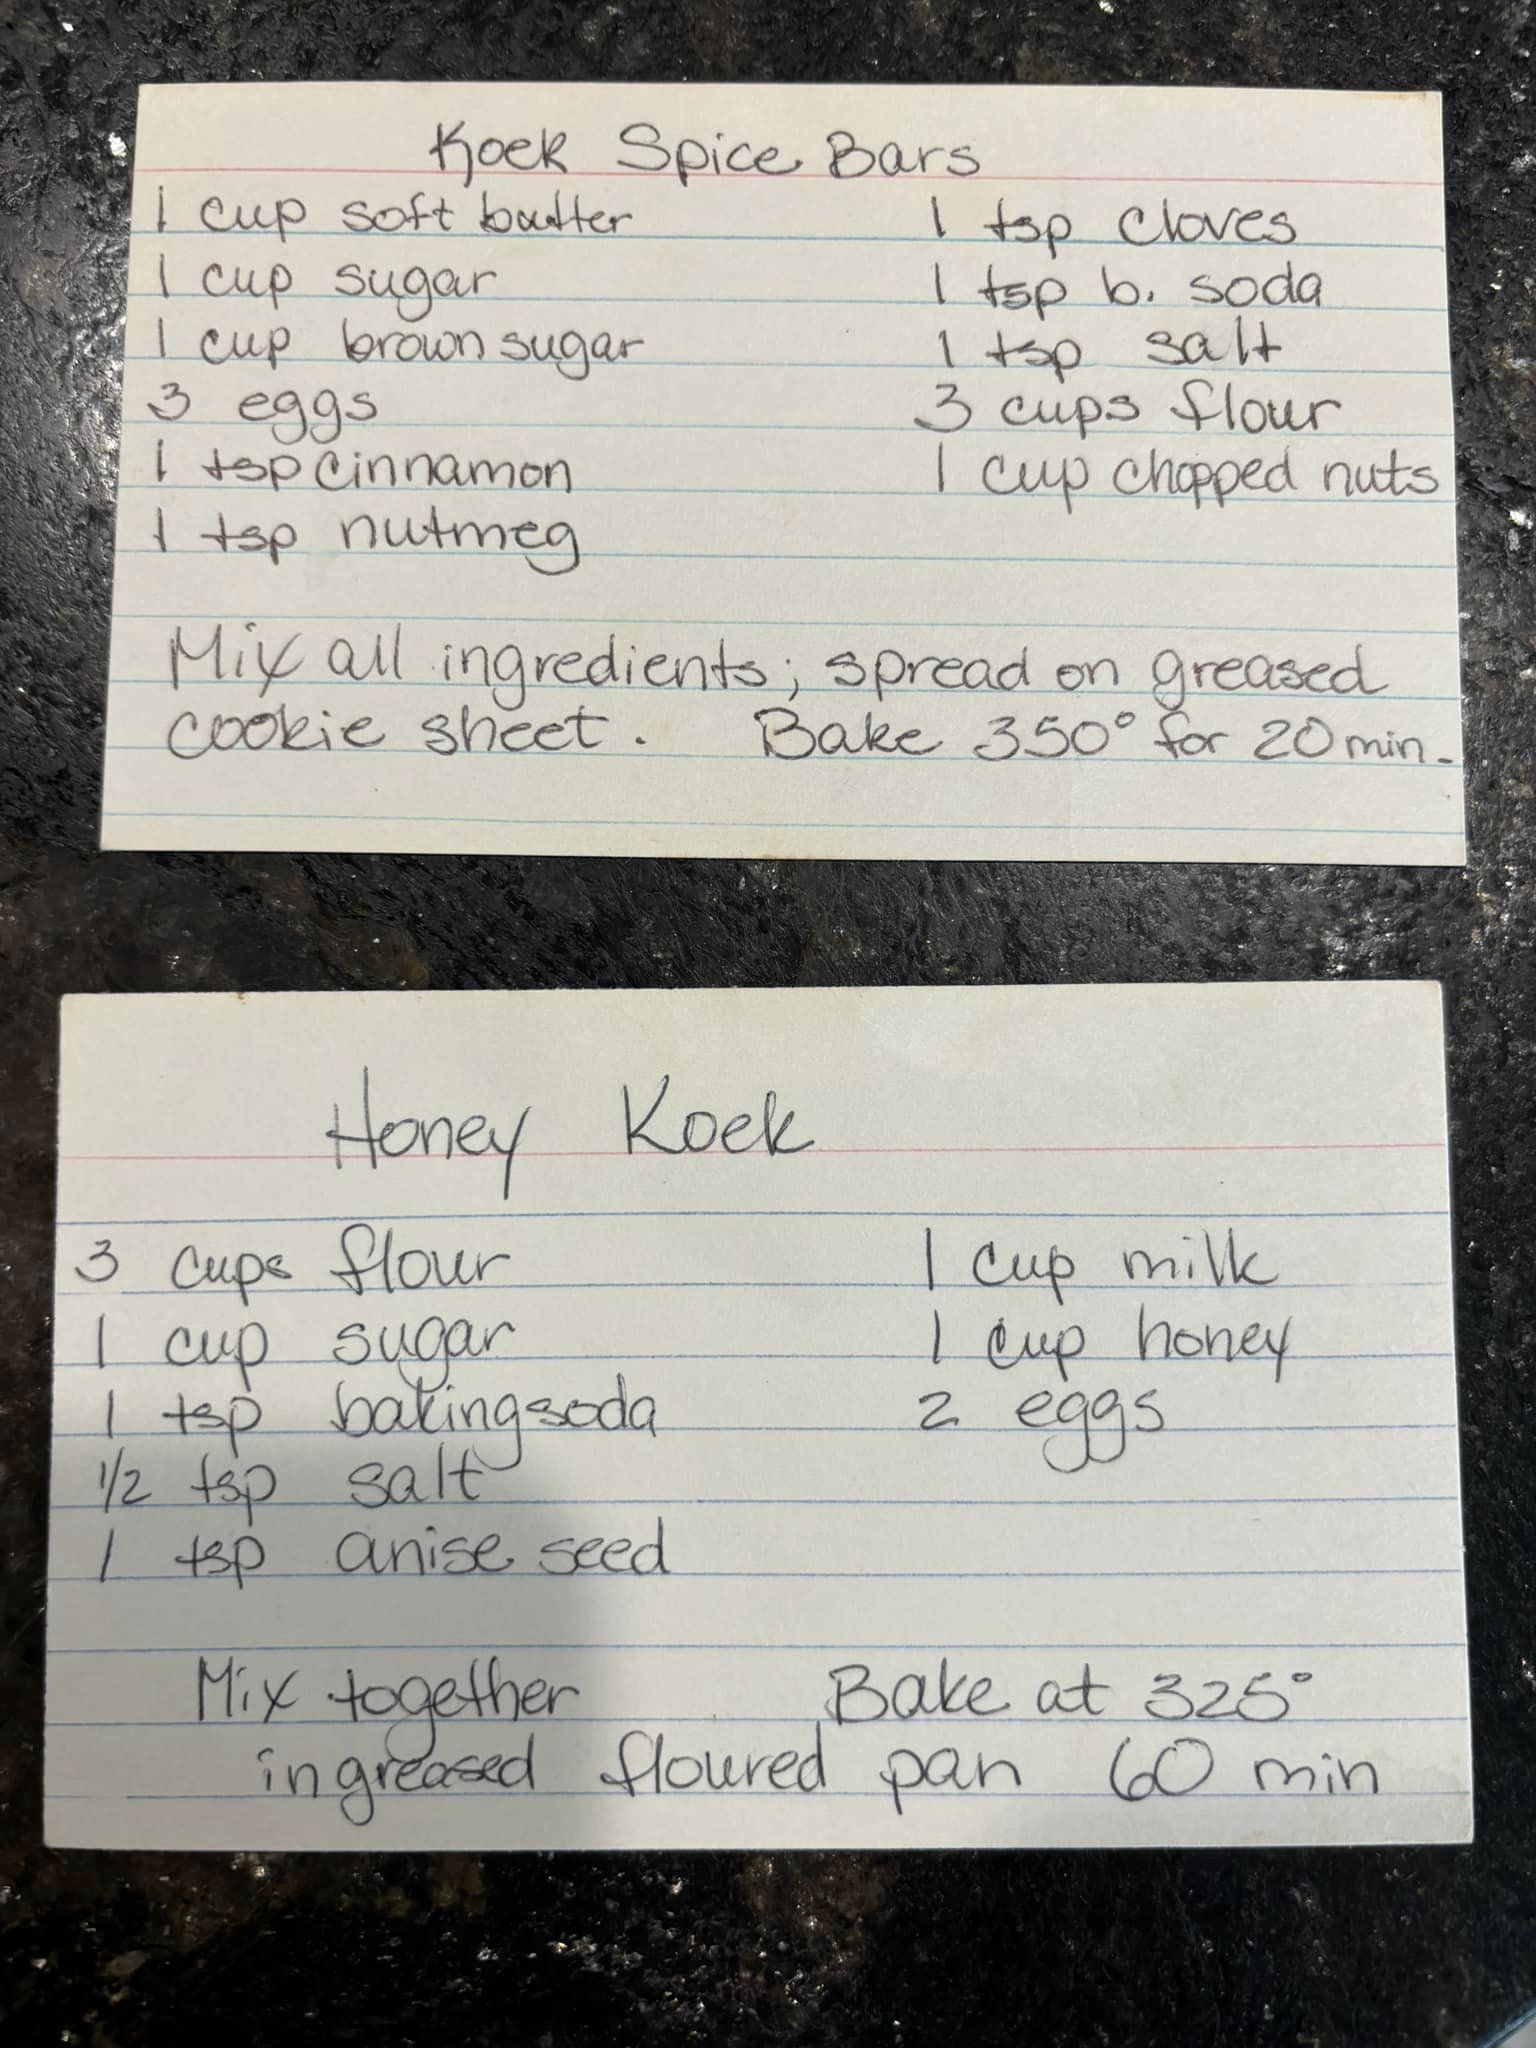 Koek Spice Bars
1 cup soft butter
1 cup sugar
1 cup brown sugar
3 eggs
1 tsp cinnamon
1 tsp nutmeg
1 tsp cloves
1 tsp b. soda
1 tsp salt
3 cups flour
1 cup chopped nuts
Mix all ingredients; spread on greased
cookie sheet. Bake 350° for 20 min.
Honey Koek
3 cups flour
1 cup sugar
1 tsp baking soda
1/2 tsp salt
1 tsp anise seed
1 cup milk
1 cup honey
2 eggs
Mix together Bake at 325°
in greased floured pan 60 min